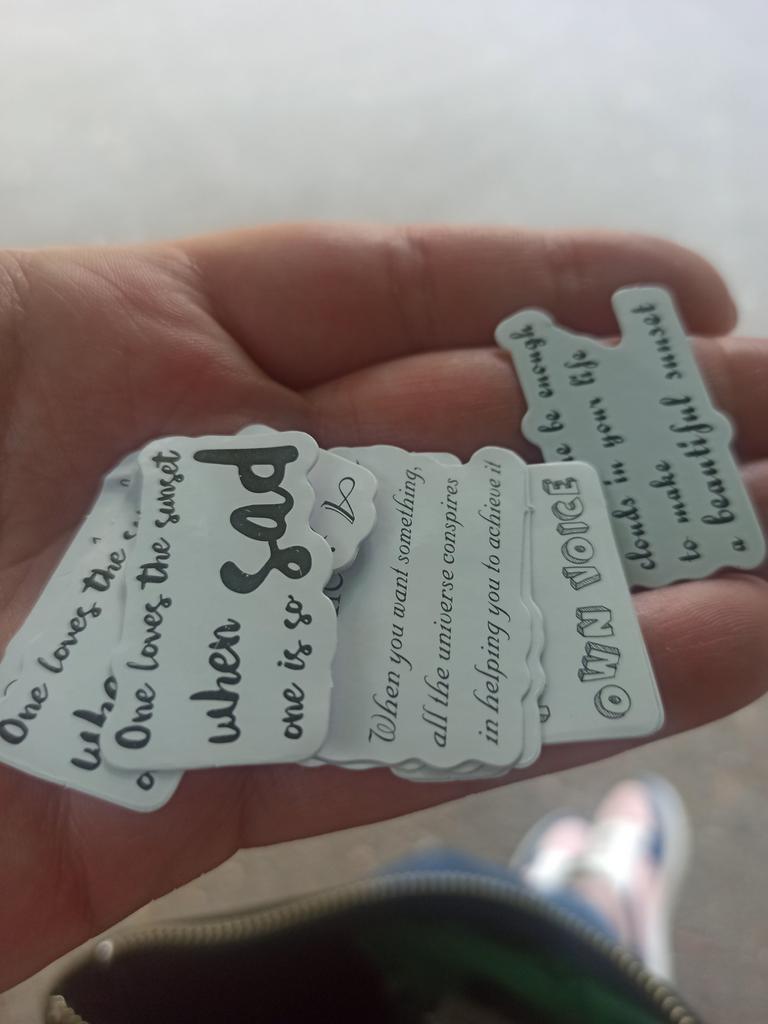 One loves the
One loves the sunset
when sad
one is so
When you want something,
all the universe conspires
in helping you to achieve it
OWN VOICE
be enough
clouds in your life
to make
a beautiful sunset